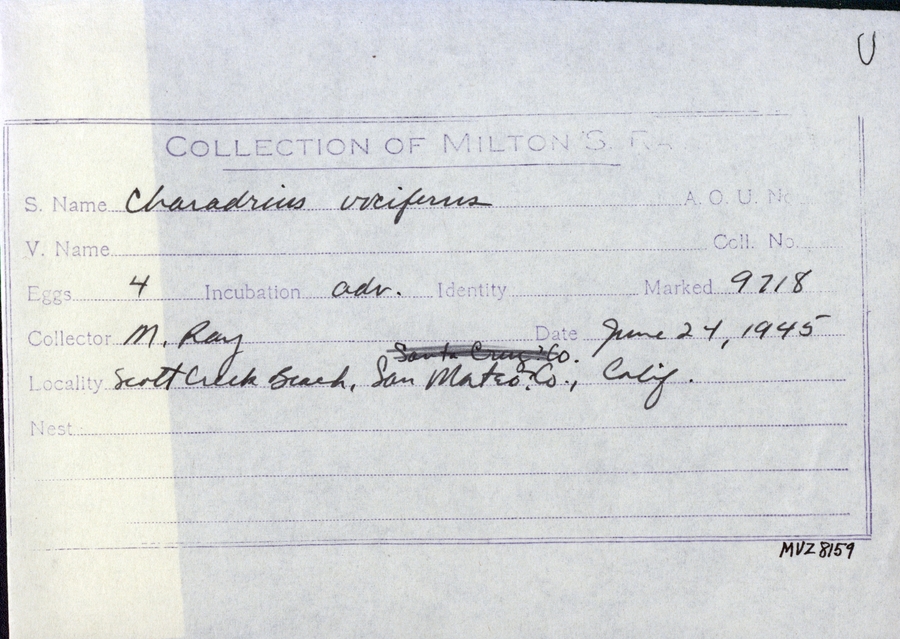 U
COLLECTION OF MILTON S. RA
S. Name Charadrius vociferus A. O. U. No
V. Name Coll. No.
Eggs 4 Incubation adv. Identity Marked 9718
Collector M. Ray Date June 24, 1945
Santa Cruz Co.
Locality Scott Creek Beach, San Mateo? Co., Calif.
Nest
MVZ 8159